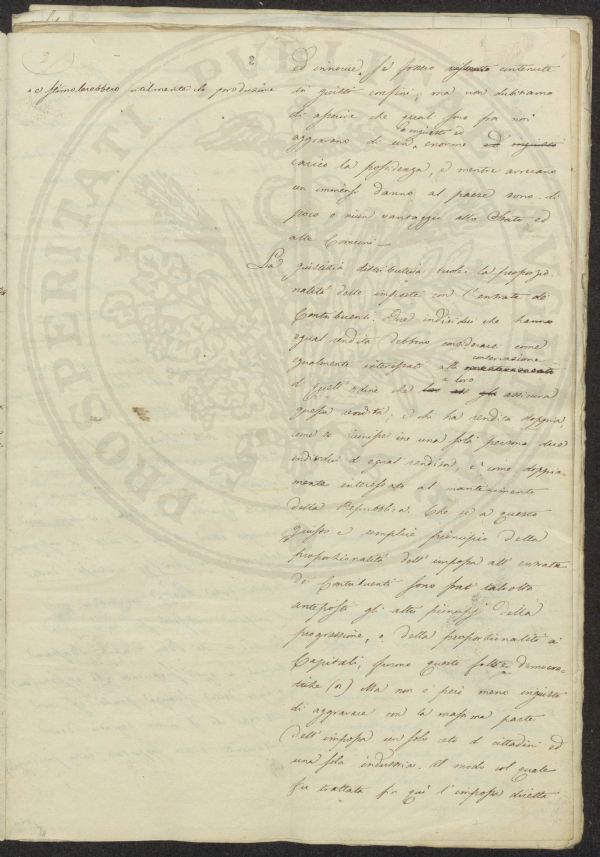 2
ed innocue, se fossero contenute
e stimolerebbero utilmente la produzione
in giusti confini, ma non dubitiamo
di asserire che quali sono fra noi
aggravano di un ingiusto ed enorme ed ingiusto
carico la possidenza, e mentre arrecano
un immenso danno al paese sono di
poco o niun vantaggio allo Stato ed
alle Comuni.—
La giustizia distributiva vuole la proporzio
nalità delle imposte con l'entrata de'
Contribuenti. Due individui che hanno
egual rendita debbono considerarsi come
egualmente interessati alla conservazione
di quell'ordine che a loro assicura
questa rendita: e chi ha rendita doppia,
come se riunisse in una sola persona due
individui d'egual rendita, è come doppia-
mente interessato al mantenimento
della Repubblica. Che se a questo
giusto e semplice principio della
proporzionalità dell'imposta all'entrata
de' Contribuenti sono stati talvolta
anteposti gli altri principj della
progressione, o della proporzionalità ai
Capitali, furono queste democra-
tiche (a) Ma non è però meno ingiusto
di aggravare con la massima parte
dell'imposta un solo ceto di cittadini ed
una sola industria. Al modo col quale
fu trattata fin qui l'imposta diretta